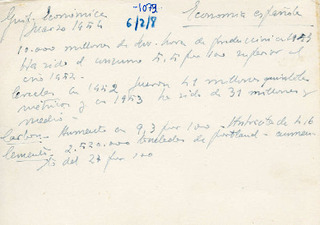 Económica
marzo 1954
-1079
6/2/8
Economía española
10.000 millones de kw. hora de producción en 1953
Ha sido el aumento 5.5 por 100 superior al
año 1952.
Cereales en 1952 fueron 41 millones quintales
métricos y en 1953 ha sido de 31 millones y
medio -
Carbon - Aumento en 9,3 por 100 - 4,6
Cemento - 2.520.000 toneladas de portland - aumen
del 2 por 100